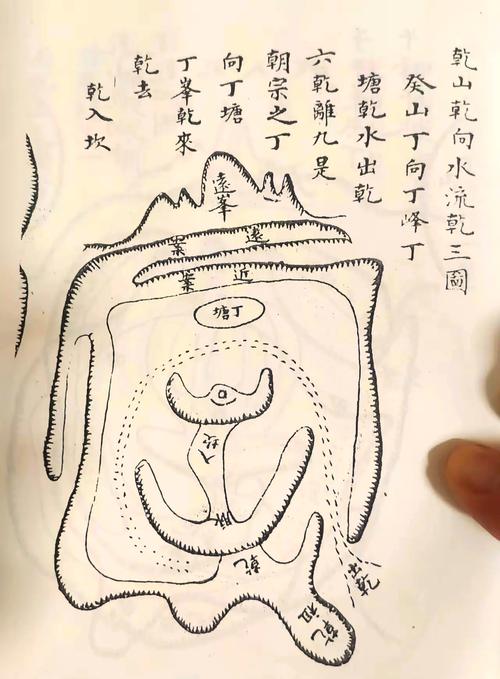 乾山乾向水流乾三圖
癸山丁向丁峰丁
塘乾水出乾
六乾離九是
朝宗之丁
向丁塘
丁峯乾來
乾去
乾入坎
遠峯
遠案
近案
丁塘
入坎
脈
乾
出乾
祖